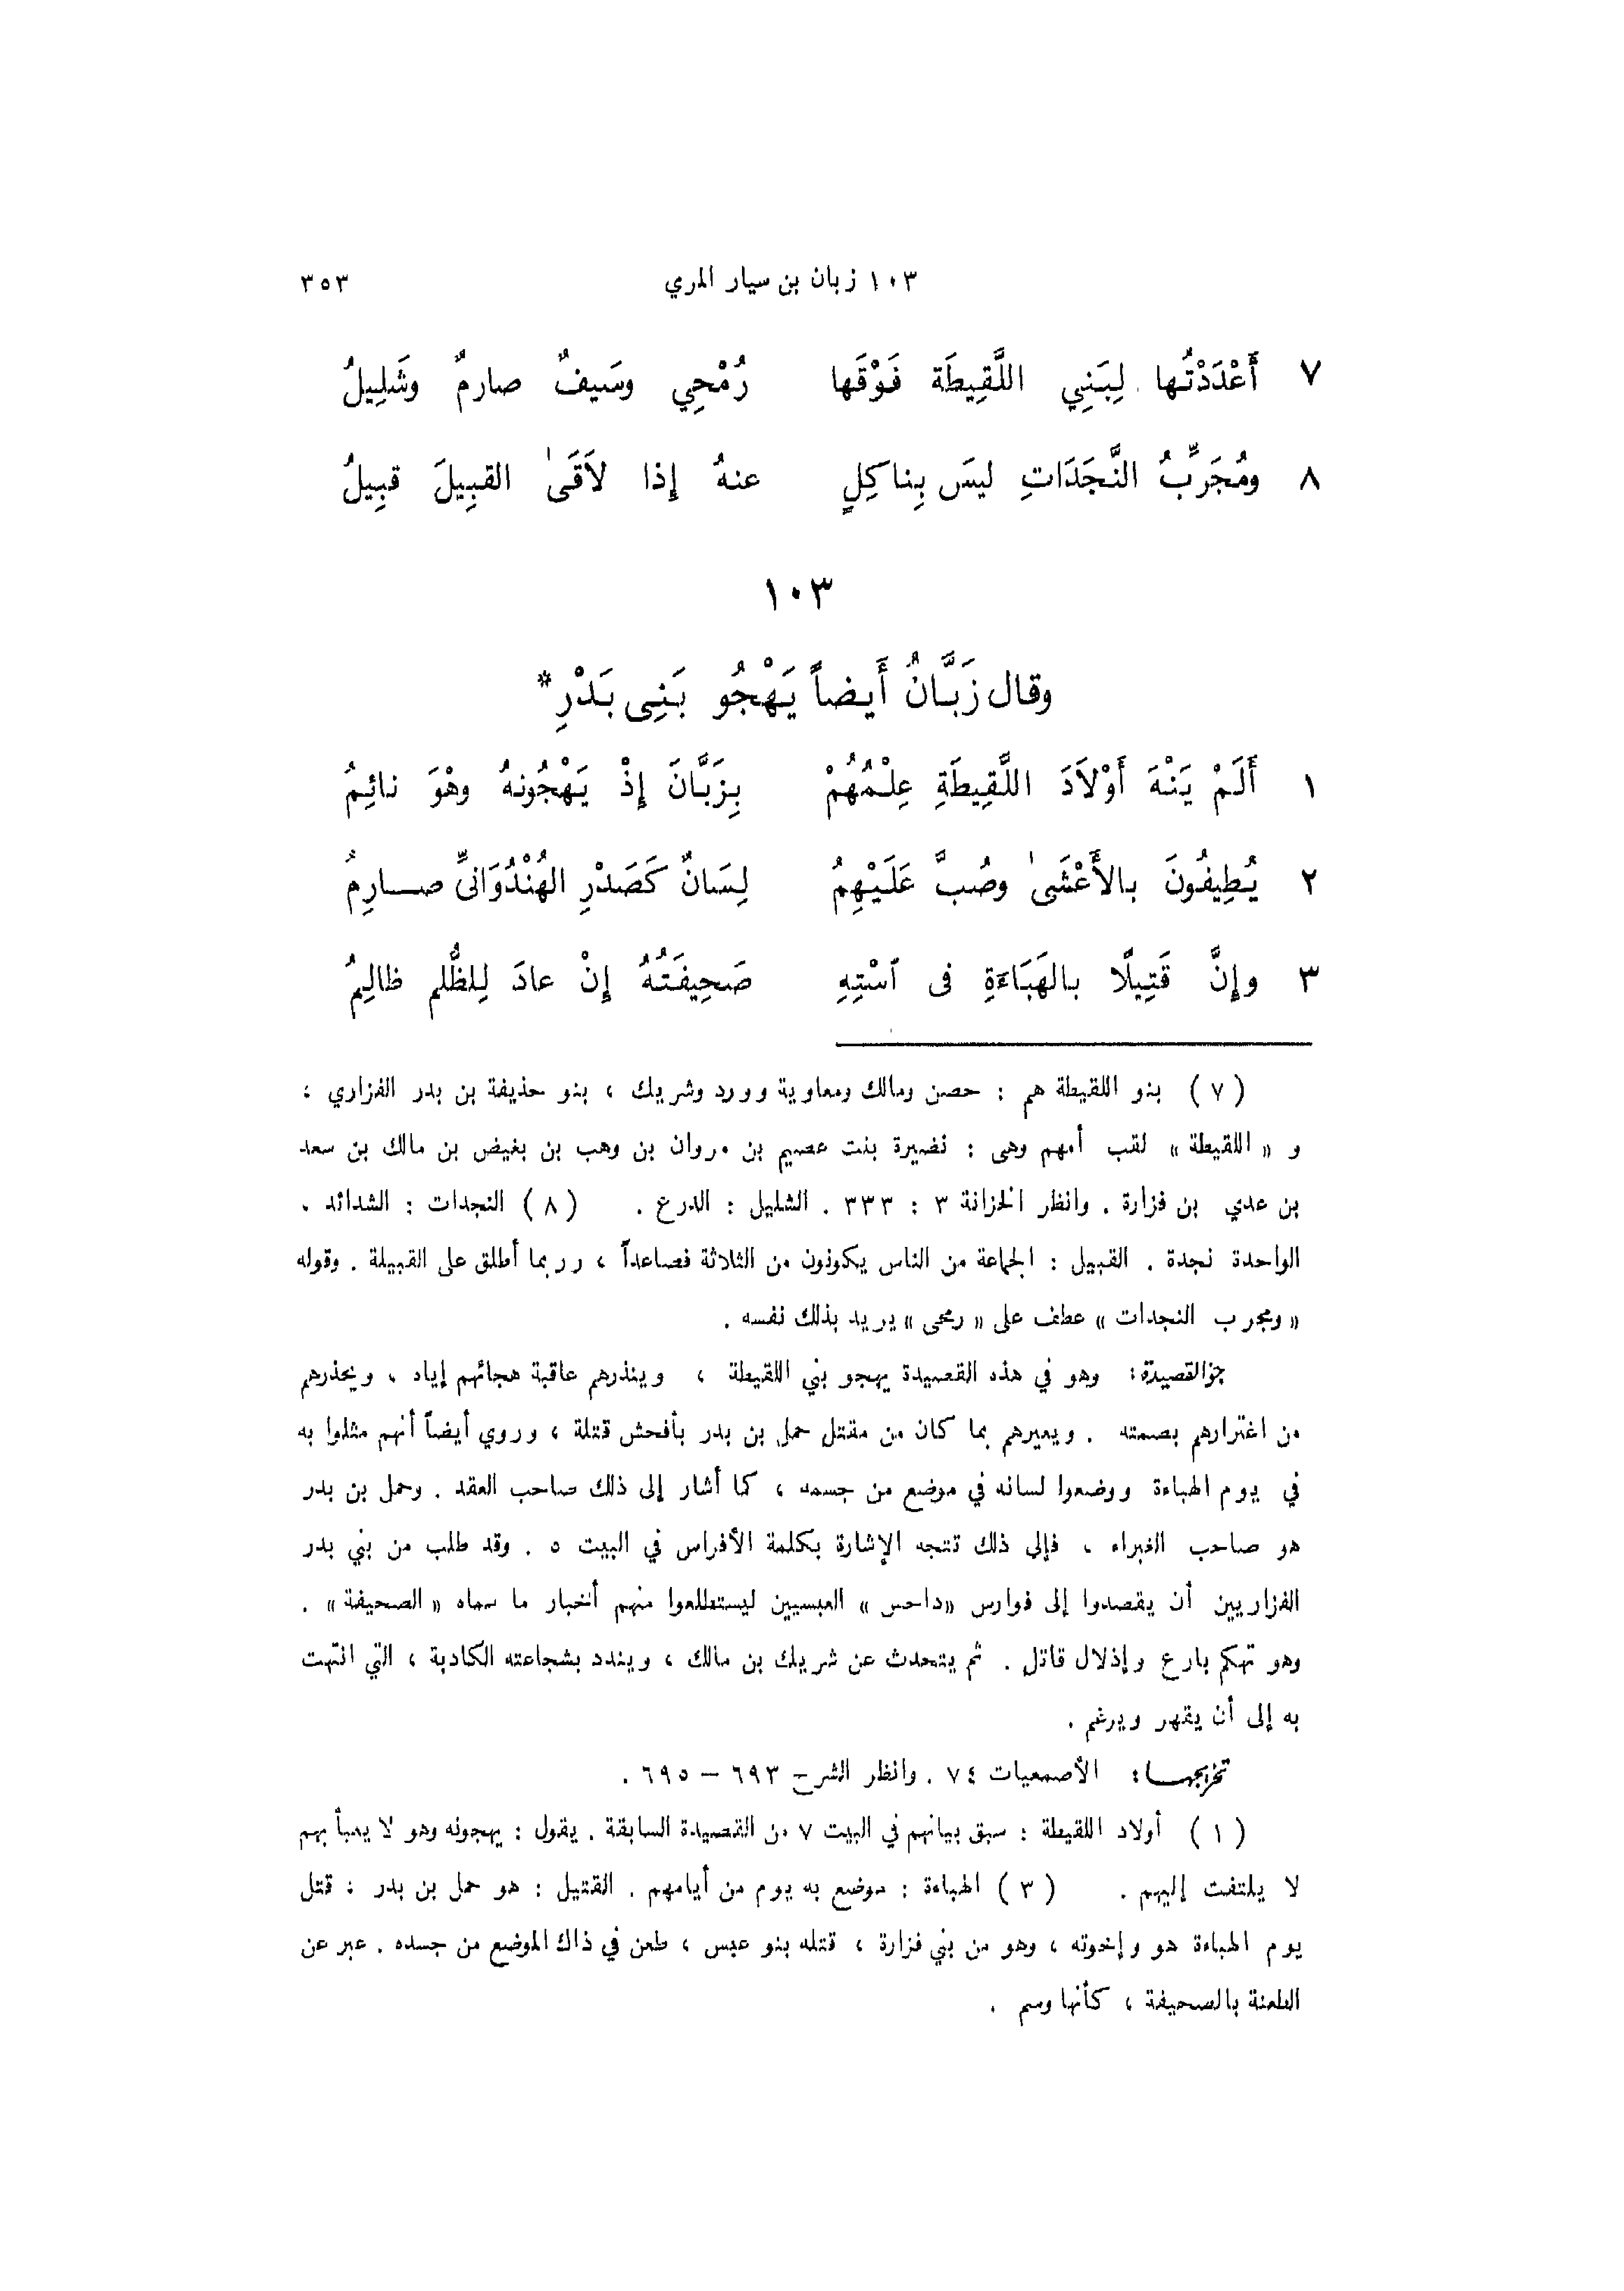 ١٠٣ زبان بن سيار المري ٣٥٣
٧ أَعْدَدْتُها لِبَنِي اللَّقِيطَة فَوْقَها رُمْحِي وسَيفٌ صارمٌ وشَلِيلُ
٨ ومُجَرِّبُ النَّجَدَاتِ ليسَ بِناكِلٍ عنهُ إِذا لاَقَىٰ القبِيلَ قبِيلُ
١٠٣
وقال زَبَّانُ أَيضاً يَهْجُو بَنِى بَدْرٍ*
١ أَلَمْ يَنْهَ أَوْلاَدَ اللَّقِيطَةِ عِلْمُهُمْ بِزَبَّانَ إِذْ يَهْجُونهُ وهْوَ نائِمُ
٢ يُطِيفُونَ بالأَعْشَىٰ وصُبَّ عَلَيْهِمُ لِسَانٌ كَصَدْرِ الهُنْدُوَانىِّ صـارِمُ
٣ وإِنَّ قَتِيلًا بالهَبَاءَةِ فى ٱسْتِهِ صَحِيفَتُهُ إِنْ عادَ لِلظُّلم ظالِمُ
(٧) بنو اللقيطة هم : حصن ومالك ومعاوية وورد وشريك ، بنو حذيفة بن بدر الفزاري ؛
و « اللقيطة » لقب أمهم وهى : نضيرة بنت عصيم بن مروان بن وهب بن بغيض بن مالك بن سعد
بن عدي بن فزارة . وانظر الخزانة ٣ : ٣٣٣ . الشليل : الدرع . (٨) النجدات : الشدائد .
الواحدة نجدة . القبيل : الجماعة من الناس يكونون من الثلاثة فصاعداً ، وربما أطلق على القبيلة . وقوله
« ومجرب النجدات » عطف على « رمحى » يريد بذلك نفسه .
جوالقصيدة: وهو في هذه القصيدة يهجو بني اللقيطة ، وينذرهم عاقبة هجائهم إياه ، ويحذرهم
من اغترارهم بصمته . ويعيرهم بما كان من مقتل حمل بن بدر بأفحش قتلة ، وروي أيضاً أنهم مثلوا به
في يوم الهباءة ووضعوا لسانه في موضع من جسمه ، كما أشار إلى ذلك صاحب العقد . وحمل بن بدر
هو صاحب الغبراء ، فإلى ذلك تتجه الإشارة بكلمة الأفراس في البيت ٥ . وقد طلب من بني بدر
الفزاريين أن يقصدوا إلى فوارس «داحس» العبسيين ليستطلعوا منهم أخبار ما سماه «الصحيفة» .
وهو تهكم بارع وإذلال قاتل . ثم يتحدث عن شريك بن مالك ، ويندد بشجاعته الكاذبة ، التي انتهت
به إلى أن يقهر ويرغم .
تخريجهـا: الأصمعيات ٧٤ . وانظر الشرح ٦٩٣ – ٦٩٥ .
(١) أولاد اللقيطة : سبق بيانهم في البيت ٧ من القصيدة السابقة . يقول : يهجونه وهو لا يعبأ بهم
لا يلتفت إليهم . (٣) الهباءة : موضع به يوم من أيامهم . القتيل : هو حمل بن بدر : قتل
يوم الهباءة هو وإخوته ، وهو من بني فزارة ، قتله بنو عبس ، طعن في ذاك الموضع من جسده . عبر عن
الطعنة بالصحيفة ، كأنها وسم .